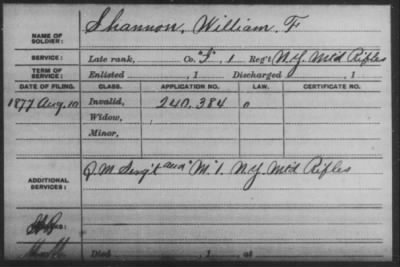 NAME OF SOLDIER: Shannon, William F
SERVICE: Late rank, Co. "F", 1 Reg't N.Y. Mt'd Rifles
TERM OF SERVICE: Enlisted , 1 Discharged , 1
DATE OF FILING. CLASS. APPLICATION NO. LAW. CERTIFICATE NO.
1877 Aug. 10 Invalid, 240.384
Widow,
Minor,
ADDITIONAL SERVICES: Q M Serg't and "M" 1. N.Y. Mt'd Rifles
Died , 1 , at